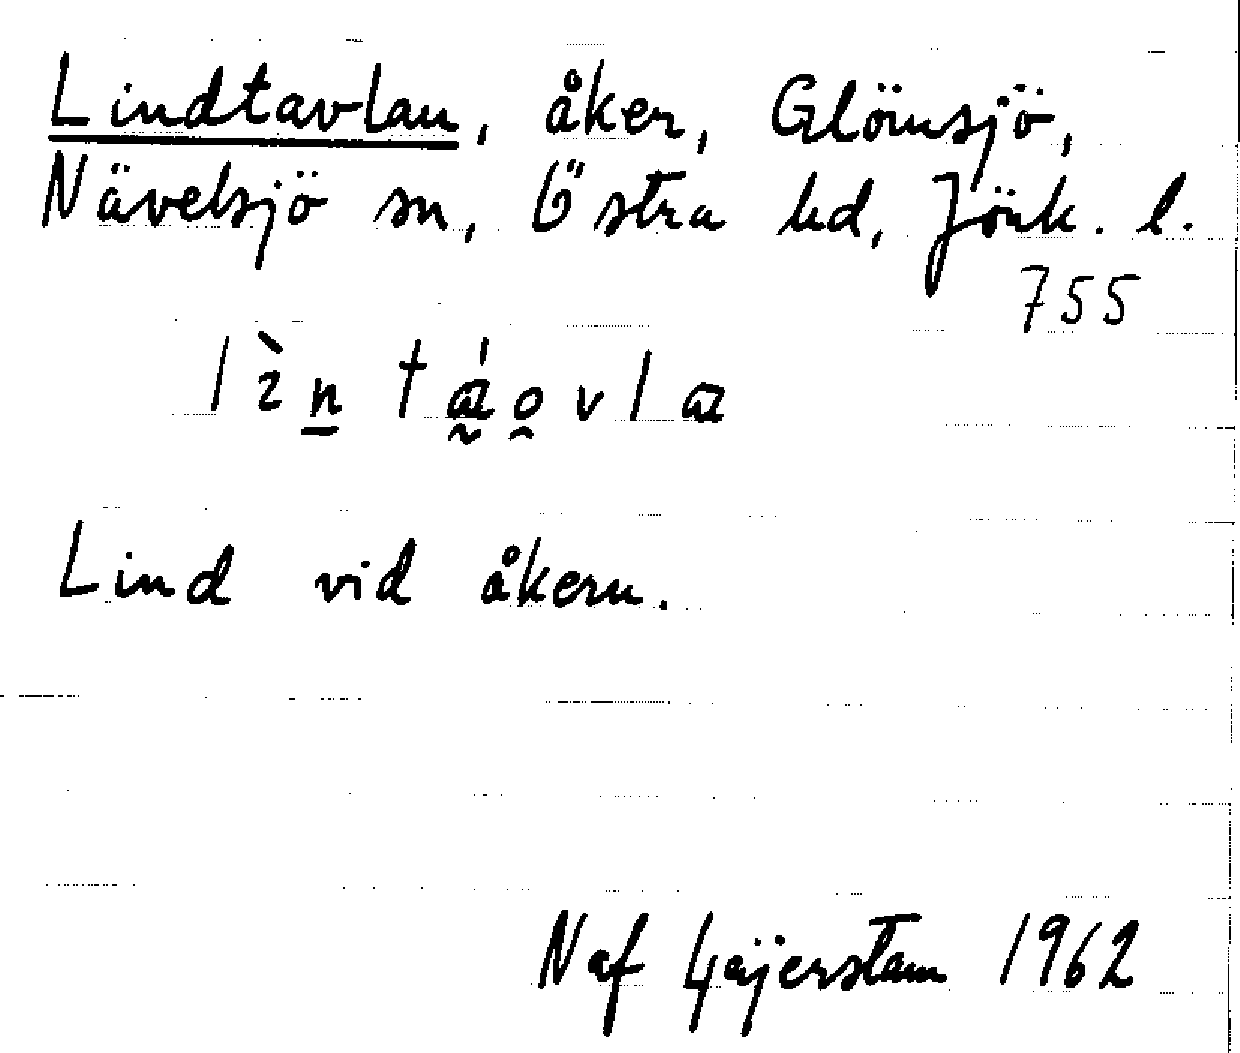 Lindtavlan, åker, Glömsjö,
Nävelsjö sn, Östra hd, Jönk. l.
755
Lind vid åkern.
N af Gäijerstam 1962